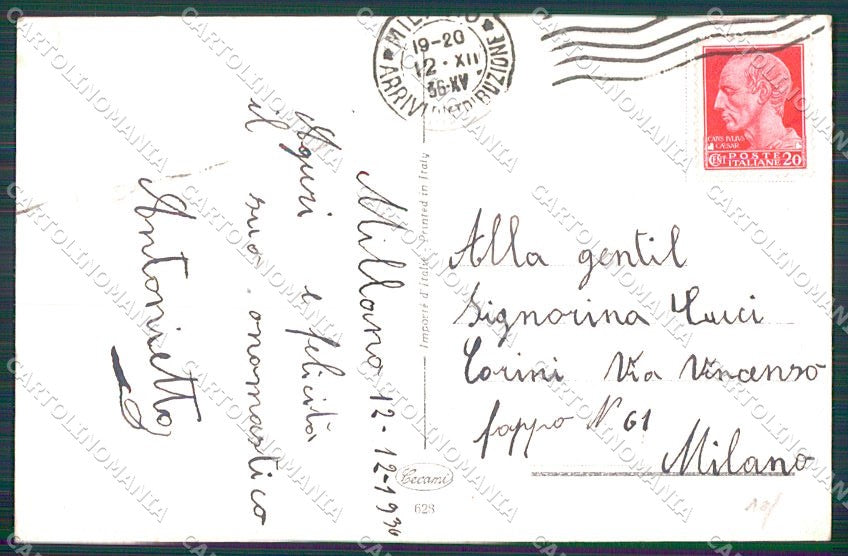 Millano 12-12-1936
Aguri e felicità
il suo onomastico
Antonietta
Importé d'Italie - Printed in Italy
Cecami
628
MILANO
19-20
12 · XII
36·XV
ARRIVI DISTRIBUZIONE
CAIVS IVLIVS
CAESAR
CENT POSTE ITALIANE 20
Alla gentil
Signorina Luci
Torini Via Vincenso
foppo N 61
Milano
CARTOLINOMANIA